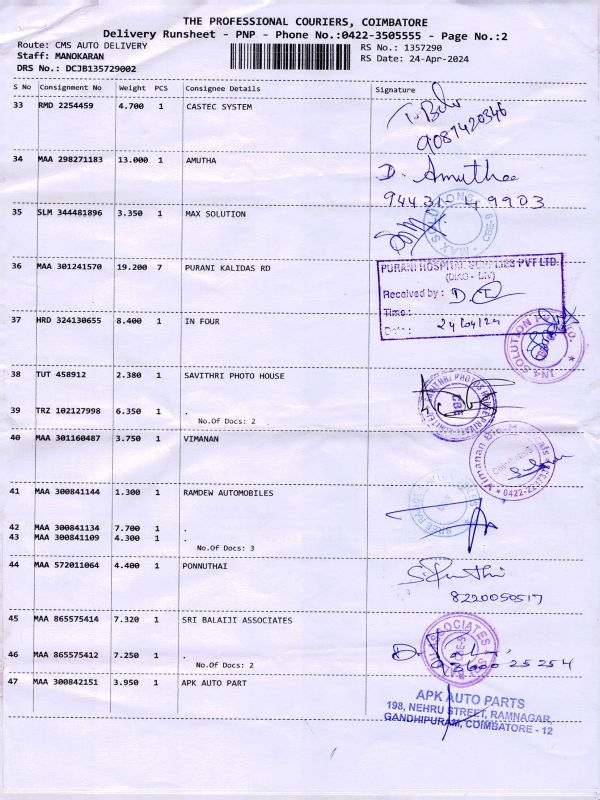 THE PROFESSIONAL COURIERS, COIMBATORE
Delivery Runsheet - PNP - Phone No.:0422-3505555 - Page No.:2
Route: CMS AUTO DELIVERY RS No.: 1357290
Staff: MANOKARAN RS Date: 24-Apr-2024
DRS No.: DCJB135729002
S No Consignment No Weight PCS Consignee Details Signature
33 RMD 2254459 4.700 1 CASTEC SYSTEM
9087420346
34 MAA 298271183 13.000 1 AMUTHA D. Amutha
35 SLM 344481896 3.350 1 MAX SOLUTION
36 MAA 301241570 19.200 7 PURANI KALIDAS RD
PURANI HOSPITAL SUPPLIES PVT LTD.
Received by :
Time :
Date : 24/04/24
37 HRD 324130655 8.400 1 IN FOUR
38 TUT 458912 2.380 1 SAVITHRI PHOTO HOUSE
39 TRZ 102127998 6.350 1 .
No.Of Docs: 2
40 MAA 301160487 3.750 1 VIMANAN
41 MAA 300841144 1.300 1 RAMDEW AUTOMOBILES
42 MAA 300841134 7.700 1 .
43 MAA 300841109 4.300 1 .
No.Of Docs: 3
44 MAA 572011064 4.400 1 PONNUTHAI
8220050517
45 SLM 865575414 7.320 1 SRI BALAIJI ASSOCIATES
46 MAA 865575412 7.250 1 .
No.Of Docs: 2
47 MAA 300842151 3.950 1 APK AUTO PART
APK AUTO PARTS
198, NEHRU STREET, RAMNAGAR,
GANDHIPURAM, COIMBATORE - 12